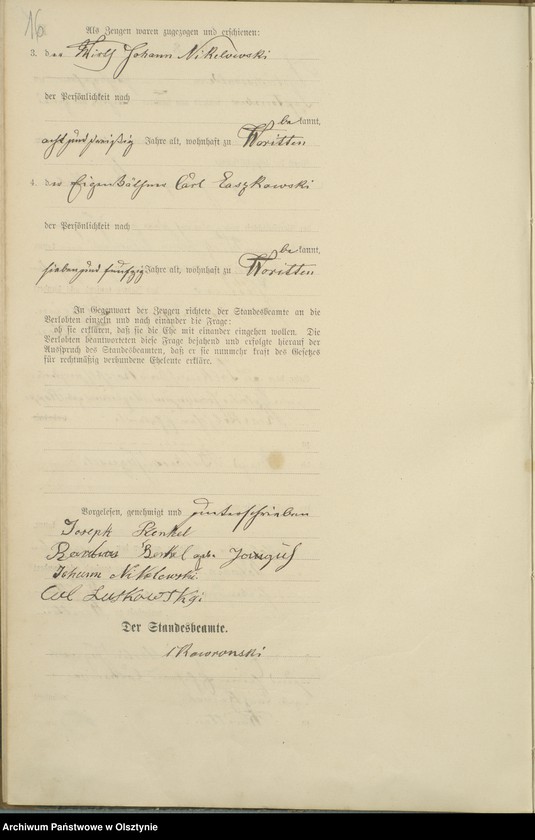 16
Als Zeugen waren zugezogen und erschienen:
3. der Wirth Johann Nikelowski
der Persönlichkeit nach
be kannt,
acht und dreißig Jahre alt, wohnhaft zu Woritten
4. der Eigenkäthner Carl Laszkowski
der Persönlichkeit nach
be kannt,
sieben und fünfzig Jahre alt, wohnhaft zu Woritten
In Gegenwart der Zeugen richtete der Standesbeamte an die
Verlobten einzeln und nach einander die Frage:
ob sie erklären, daß sie die Ehe mit einander eingehen wollen. Die
Verlobten beantworteten diese Frage bejahend und erfolgte hierauf der
Ausspruch des Standesbeamten, daß er sie nunmehr kraft des Gesetzes
für rechtmäßig verbundene Eheleute erkläre.
Vorgelesen, genehmigt und unterschrieben
Joseph
Barbara geb.
Johann Nikolowski
Der Standesbeamte.
Archiwum Państwowe w Olsztynie